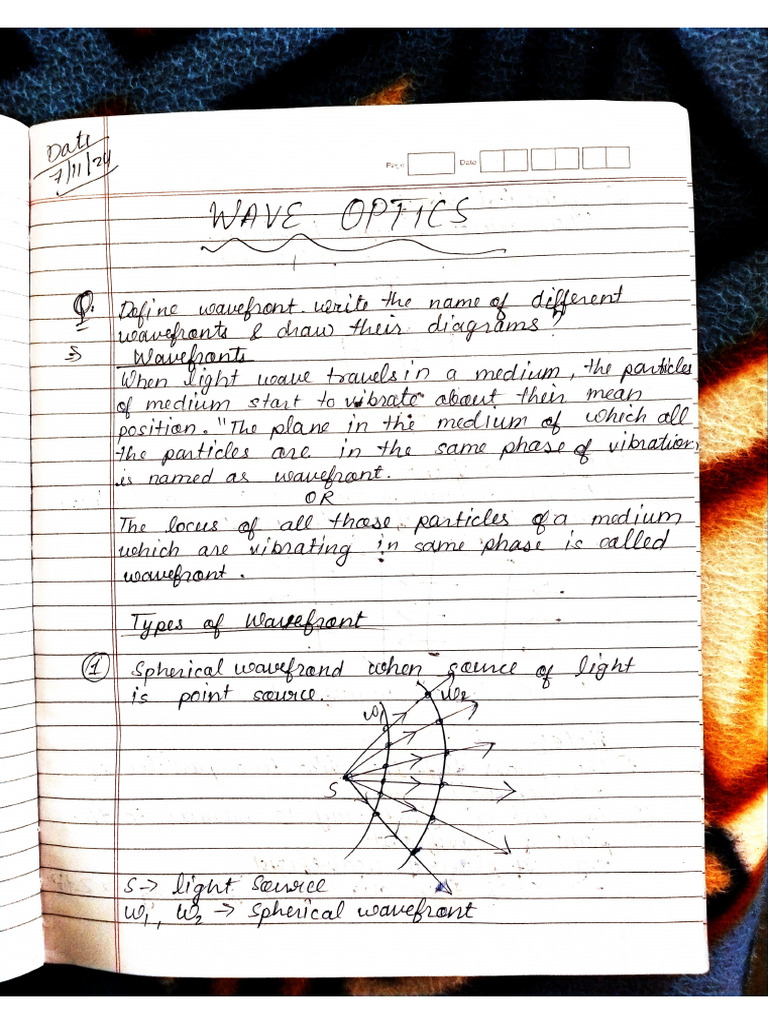 Date
7/11/24
Page Date
WAVE OPTICS
Q. Define wavefront. write the name of different
wavefronts & draw their diagrams?
⇒ Wavefronts
When light wave travels in a medium, the particles
of medium start to vibrate about their mean
position. "The plane in the medium of which all
the particles are in the same phase of vibration,
is named as wavefront.
OR
The locus of all those particles of a medium
which are vibrating in same phase is called
wavefront.
Types of Wavefront
① Spherical wavefrond when source of light
is point source.
W1 W2
S
S → light source
W1, W2 → Spherical wavefront